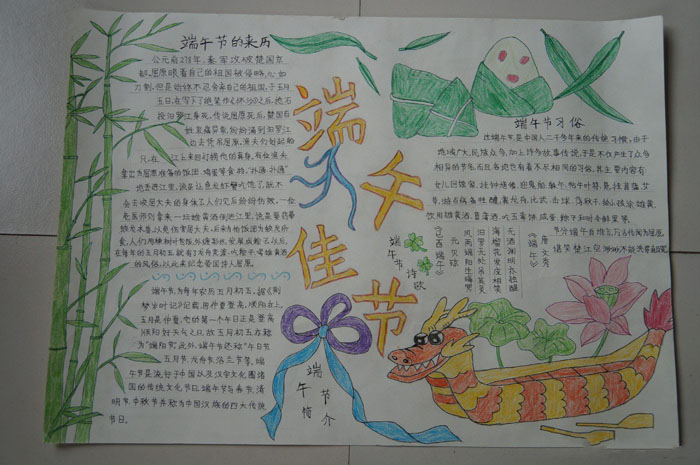 端午节的来历
公元前278年，秦军攻破楚国京
都。屈原眼看自己的祖国被侵略，心如
刀割，但是始终不忍舍弃自己的祖国，于五月
五日，在写下了绝笔作《怀沙》之后，抱石
投汨罗江身死，传说屈原死后，楚国百
姓哀痛异常，纷纷涌到汨罗江
边去凭吊屈原。渔夫们划起船
只，在江上来回打捞他的真身。有位渔夫
拿出为屈原准备的饭团、鸡蛋等食物，“扑通、扑通”
地丢进江里，说是让鱼龙虾蟹吃饱了，就不
会去咬屈大夫的身体了。人们见后纷纷仿效。一位
老医师则拿来一坛雄黄酒倒进江里，说是要药晕
蛟龙水兽，以免伤害屈大夫。后来为怕饭团为蛟龙所
食，人们用楝树叶包饭，外缠彩丝，发展成粽子。以后，
在每年的五月初五，就有了龙舟竞渡、吃粽子、喝雄黄酒
的风俗，以此来纪念爱国诗人屈原。
端午节为每年农历五月初五，据《荆
楚岁时记》记载，因仲夏登高，顺阳在上，
五月是仲夏，它的第一个午日正是登高
顺阳好天气之日，故五月初五亦称
为“端阳节”。此外，端午节还称“午日节
五月节、龙舟节、浴兰节等，端
午节是流行于中国以及汉字文化圈诸
国的传统文化节日，端午节与春节、清
明节、中秋节并称为中国汉族的四大传统
节日。
端午佳节
端午节简介
端午节诗歌
《己酉端午》
元 贝琼
风雨端阳生晦冥
汨罗无处吊英灵
海榴花发应相笑
无酒渊明亦独醒
《端午》
唐 文秀
节分端午自谁言，万古传闻为屈原
堪笑楚江空渺渺，不能洗得直臣冤
端午节习俗
过端午节，是中国人二千多年来的传统习惯，由于
地域广大，民族众多，加上许多故事传说，于是不仅产生了众多
相异的节名，而且各地也有着不尽相同的习俗。其主要内容有
女儿回娘家，挂钟馗像，
悬挂菖蒲、艾
草，
佩香囊，赛龙舟，比武，击球，荡秋千，给小孩涂雄黄，
饮用雄黄酒、菖蒲酒，吃五毒饼、咸蛋、粽子和时令鲜果等。